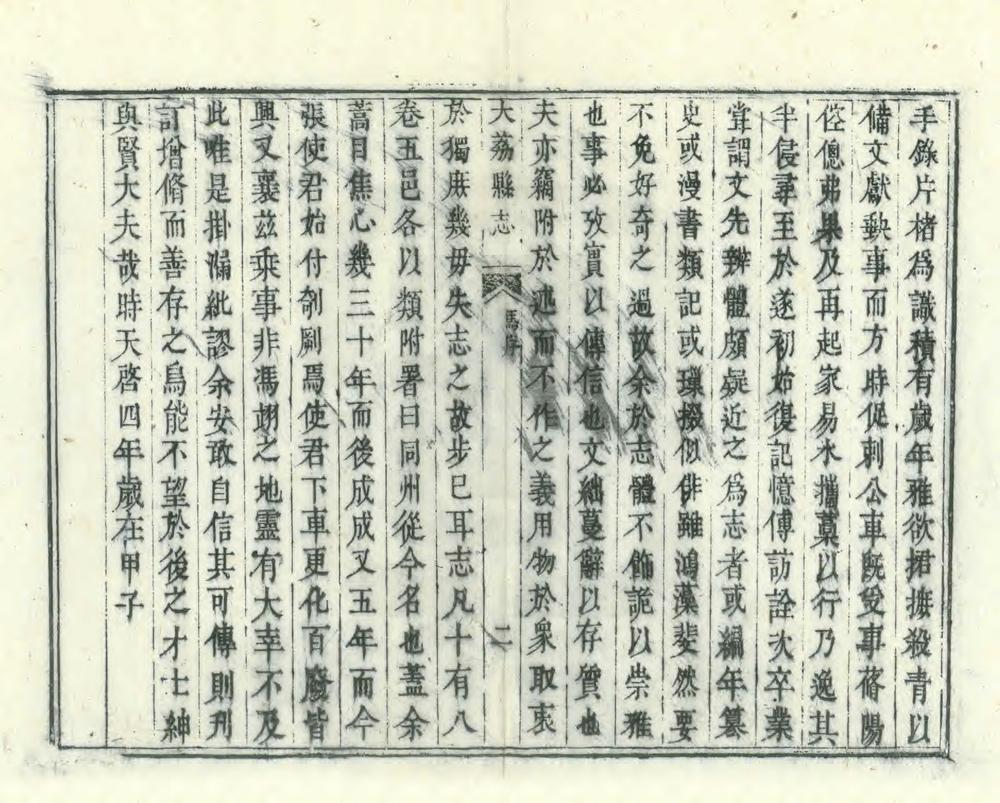 手錄片楮爲識積有歲年雅欲捃摭殺青以
備文獻缺事而方時促刺公車既受事蓨陽
倥傯弗果及再起家易水攜藁以行乃逸其
半侵尋至於遂初始復記憶傅訪詮次卒業
嘗謂文先辦體頗疑近之爲志者或編年纂
史或漫書類記或璅掇似俳雖鴻藻斐然要
不免好奇之過故余於志體不飾詭以崇雅
也事必攷實以傳信也文絀蔓辭以存質也
夫亦竊附於述而不作之義用物於衆取衷
大荔縣志
馬序
二
於獨庶幾毋失志之故步已耳志凡十有八
卷五邑各以類附署曰同州從今名也蓋余
蒿目焦心幾三十年而後成成又五年而今
張使君始付剞劂焉使君下車更化百廢皆
興又襄茲乘事非馮翊之地靈有大幸不及
此唯是掛漏紕謬余安敢自信其可傳則刋
訂增脩而善存之烏能不望於後之才士紳
與賢大夫哉時天啓四年歲在甲子